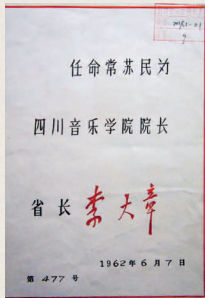 任命常苏民为
四川音乐学院院长
省长 李大章
1962年6月7日
第477号